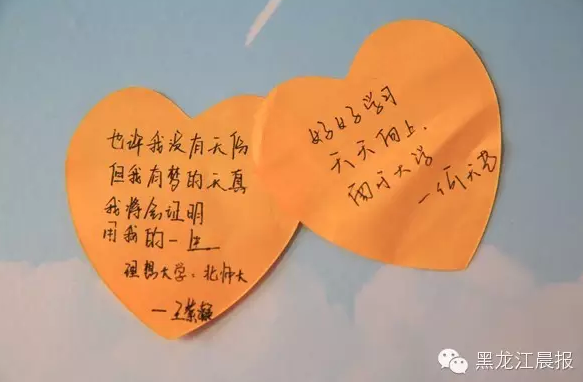 也许我没有天份
但我有梦的天真
我将会证明
用我的一生
理想大学：北师大
好好学习
天天向上.
黑龙江晨报